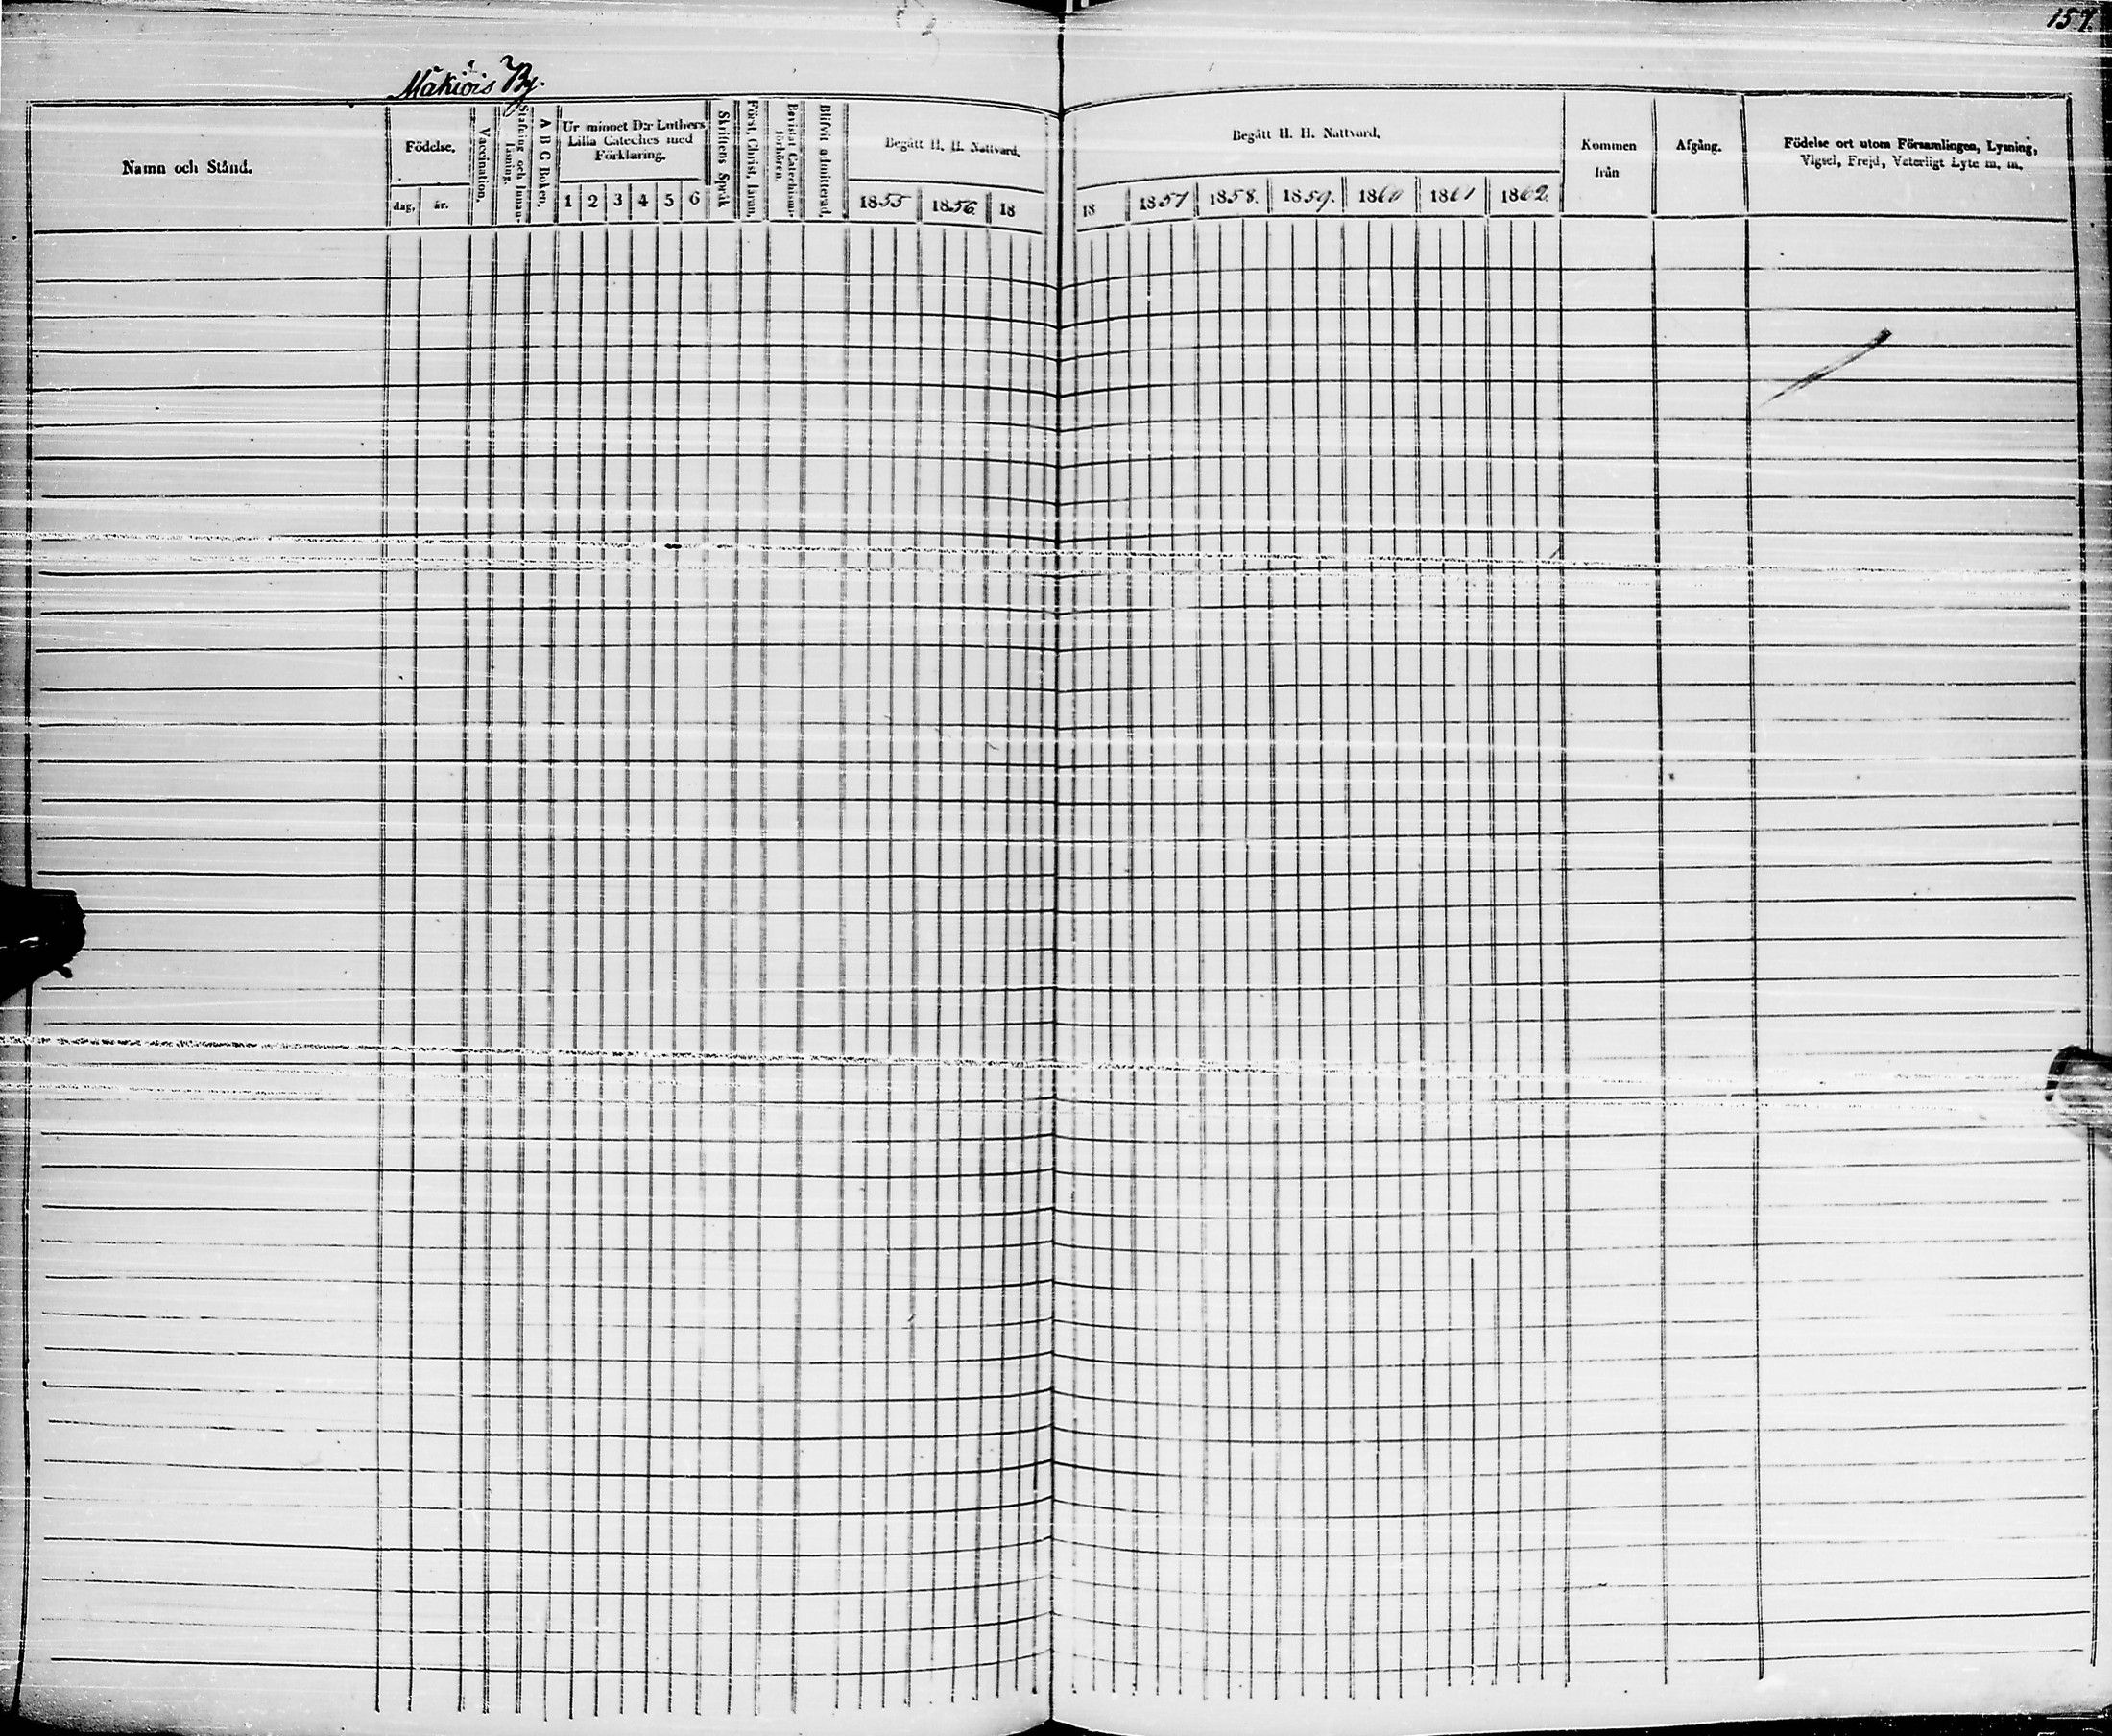 157.
Mäkiöis By.
Namn och Stånd.
Födelse.
dag, år.
Vaccination.
Stafning och Innan-
läsning.
A B C Boken.
Ur minnet D:r Luthers
Lilla Cateches med
Förklaring.
1 2 3 4 5 6
Skriftens Språk
Först. Christ. läran.
Bevistat Catechismi-
förhören.
Blifvit admitterad.
Begått H. H. Nattvard.
1855 1856. 18
Begått H. H. Nattvard.
18 1857 1858. 1859. 1860 1861 1862.
Kommen
från
Afgång.
Födelse ort utom Församlingen, Lysning,
Vigsel, Frejd, Veterligt Lyte m. m.